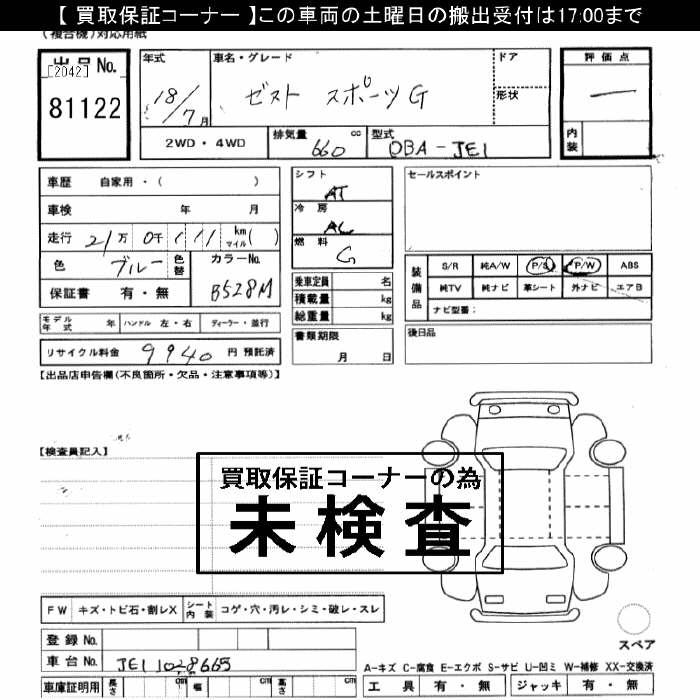 【 買取保証コーナー 】この車両の土曜日の搬出受付は17:00まで
(複合機)対応用紙
出品No.
[2042]
81122
年式
18/7月
車名・グレード
ゼスト スポーツG
ドア
形状
評価点
—
内装
2WD・4WD
排気量 660 cc
型式 DBA-JE1
車歴 自家用・( )
車検 年 月
走行 21万 0千 111 km マイル( )
色 ブルー 色替
カラーNo. B528M
保証書 有・無
シフト AT
冷房 AC
燃料 G
セールスポイント
装備品
S/R 純A/W P/S P/W ABS
純TV 純ナビ 革シート 外ナビ エアB
ナビ型番:
乗車定員 名
積載量 kg
総重量 kg
モデル年式 年 ハンドル 左・右 ディーラー・並行
書類期限 月 日
後日品
リサイクル料金 9940 円 預託済
【出品店申告欄(不良箇所・欠品・注意事項等)】
【検査員記入】
買取保証コーナーの為
未検査
FW キズ・トビ石・割レX シート内装 コゲ・穴・汚レ・シミ・破レ・スレ
スペア
登録No.
車台No. JE1 1028665
A-キズ C-腐食 E-エクボ S-サビ U-凹ミ W-補修 XX-交換済
車庫証明用 長さ cm 幅 cm 高さ cm
工具 有・無 ジャッキ 有・無